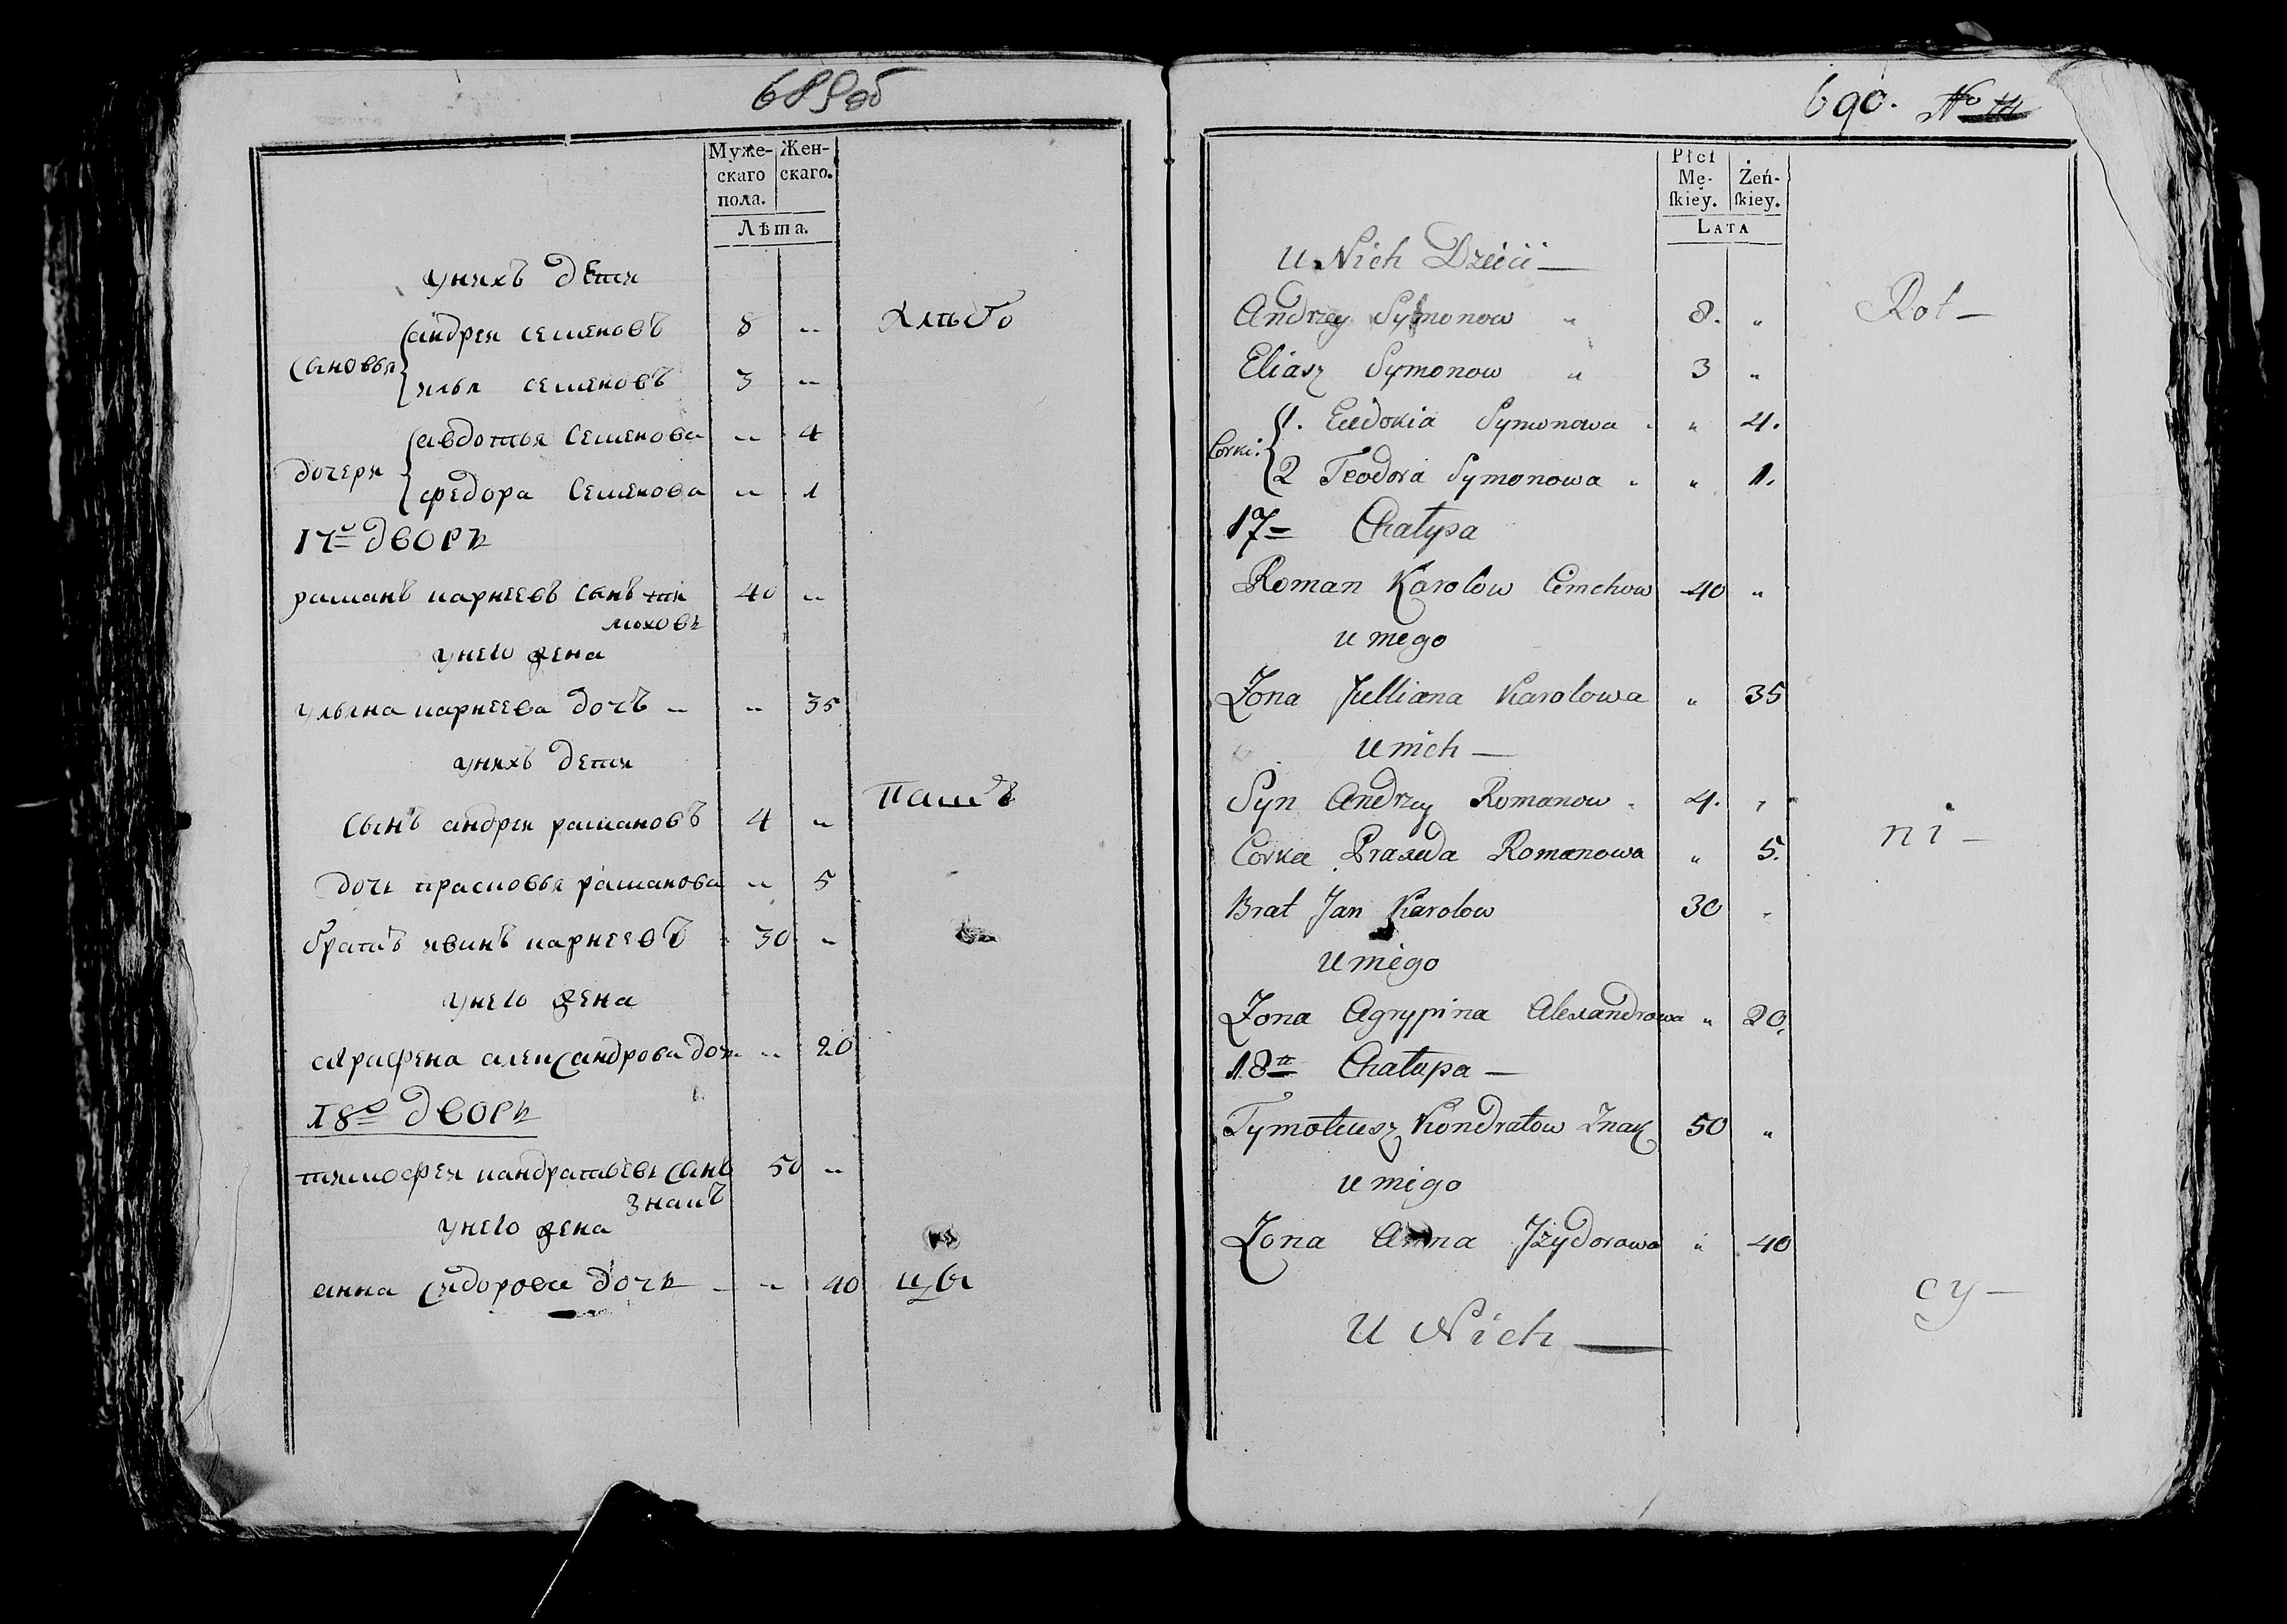 689об
Муже-
скаго
пола.
Жен-
скаго.
Лѣта.
унихъ дети
Сыновья
андреи семеновъ 8 „ Хлѣбо
илья семеновъ 3 „
дочери
авдотья Семенова „ 4
федора Семенова „ 1
17й дворъ
раманъ карнеевъ сынъ тим
ликовъ 40 „
унего жена
ульяна карнеева дочъ „ „ 35
унихъ дети
Сынъ андреи рамановъ 4 „ пашъ
дочь прасковья раманова „ 5
братъ иванъ карнеевъ 30 „
унего жена
аграфена александрова доч. „ 20
18й дворъ
тимофеи кандратьевъ сынъ
знакъ 50 „
унего жена
анна сидорова дочъ „ 40 цы
690. No
Płci
Mę-
ſkiey.
Żeń-
ſkiey.
LATA
U Nich Dzieci —
Andrzey Symonow „ 8. „ Rol —
Eliasz Symonow „ 3 „
Corki:
1. Eudokia Symonowa „ 4.
2 Teodora Symonowa „ 1.
17 Chałupa
Roman Karolow Cimchow 40 „
u niego
Zona Julliana Karolowa „ 35
U nich —
Syn Andrzey Romanow 4. „
ni —
Corka Praxeda Romanowa „ 5.
Brat Jan Karolow 30 „
U niego
Zona Agrypina Alexandrowa „ 20.
18ta Chałupa —
Tymoteusz Kondratow Znak 50 „
u niego
Zona Anna Jzydorowa „ 40
cy —
U Nich —